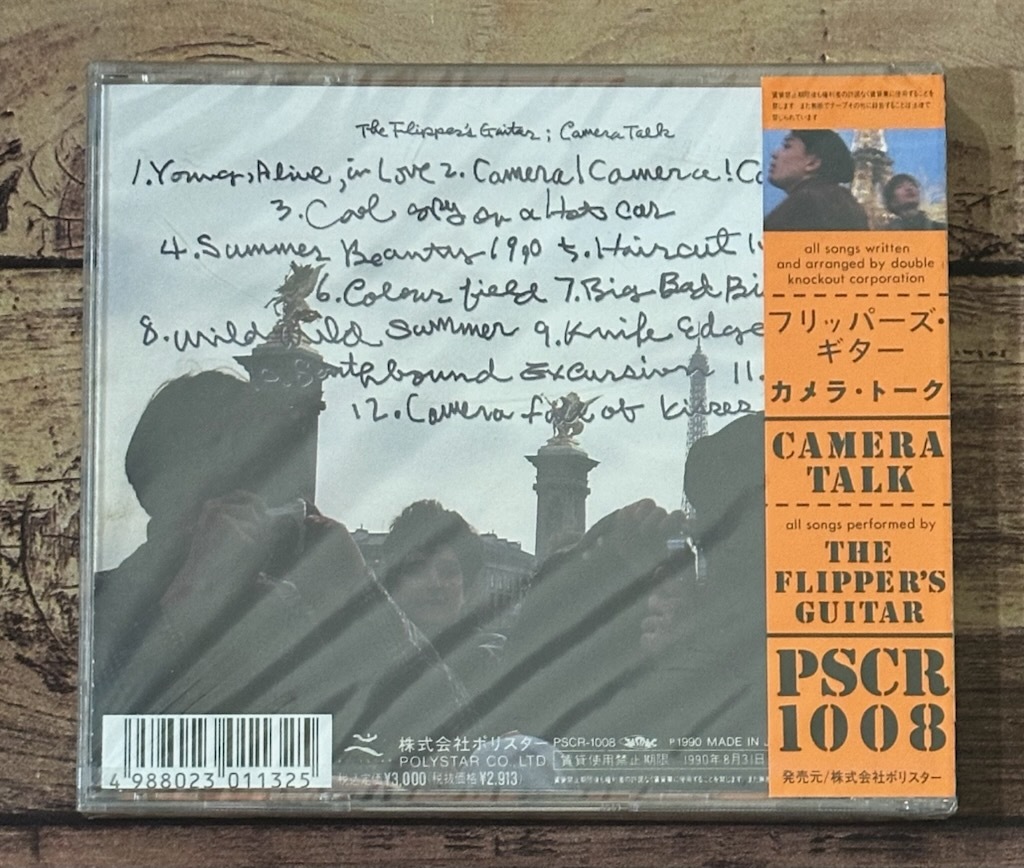 The Flipper's Guitar ; Camera Talk
1. Young, Alive, in Love 2. Camera! Camera! Ca
3. Cool spy on a Hot car
4. Summer Beauty 1990 5. Haircut
6. Colour field 7. Big Bad Bi
8. Wild Wild Summer 9. Knife Edge
uthbound Excursion 11.
12. Camera full of kisses
4 988023 011325
株式会社ポリスター PSCR-1008 ℗1990 MADE IN J
POLYSTAR CO., LTD. 賃貸使用禁止期限 1990年8月31日
税込定価¥3,000(税抜価格¥2,913)
all songs written
and arranged by double
knockout corporation
フリッパーズ・
ギター
カメラ・トーク
CAMERA
TALK
all songs performed by
THE
FLIPPER'S
GUITAR
PSCR
1008
発売元/株式会社ポリスター